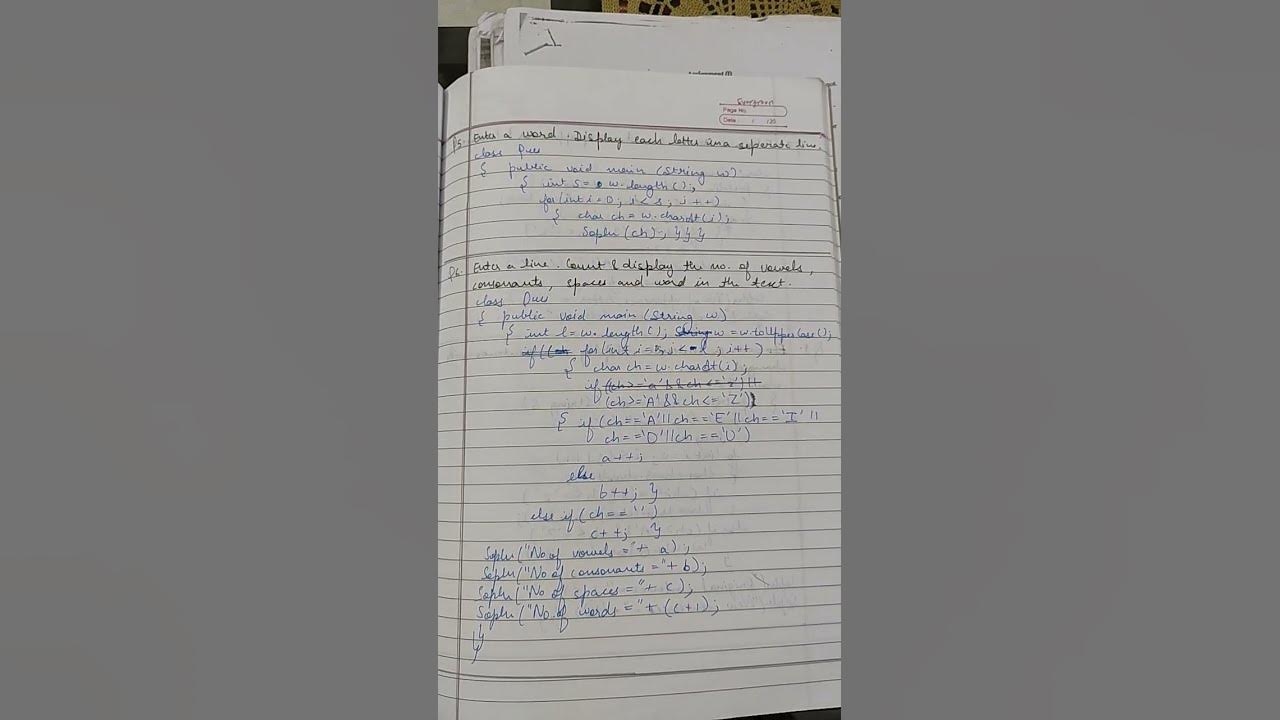 Evergreen
Page No.
Date : / /20
Q5. Enter a word. Display each letter in a seperate line.
class Ques
{ public void main (String w)
{ int s = w.length();
for(int i=0; i<s; i++)
{ char ch = w.charAt(i);
Sopln (ch); }}}
Q6. Enter a line. Count & display the no. of vowels,
consonants, spaces and word in the text.
class Ques
{ public void main (String w)
{ int l = w.length(); String w = w.toUpperCase();
if(( for(int i=0; i<l; i++)
{ char ch = w.charAt(i);
if ((ch>='a' && ch<='z') ||
(ch>='A' && ch<='Z'))
{ if (ch=='A'||ch=='E'||ch=='I' ||
ch=='O'||ch=='U')
a++;
else
b++; }
else if (ch==' ')
c++; }
Sopln("No of vowels ="+ a);
Sopln("No of consonants ="+ b);
Sopln("No of spaces ="+ c);
Sopln("No. of words ="+ (c+1);
}}